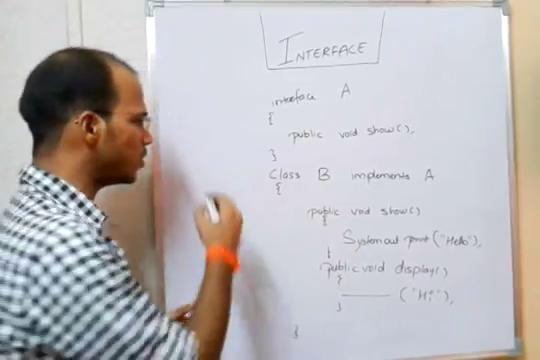 INTERFACE
interface A
{
public void show();
}
Class B implements A
{
public void show()
{
System out print ("Hello");
}
public void display()
{
——— ("Hi");
}
}